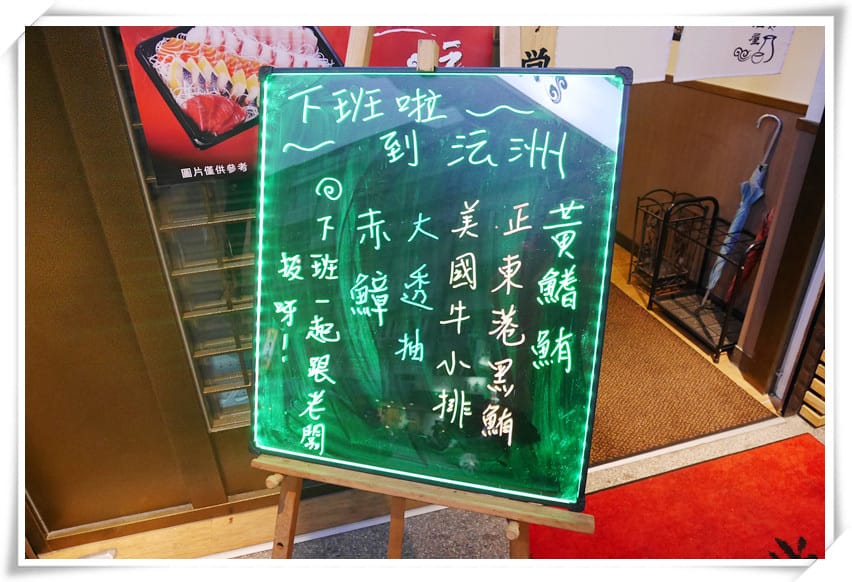 下班啦～
～ 到沄洲
黃鰭鮪
正東港黑鮪
美國牛小排
大透抽
赤鱆
下班一起跟老闆
呀!!
圖片僅供參考
屋